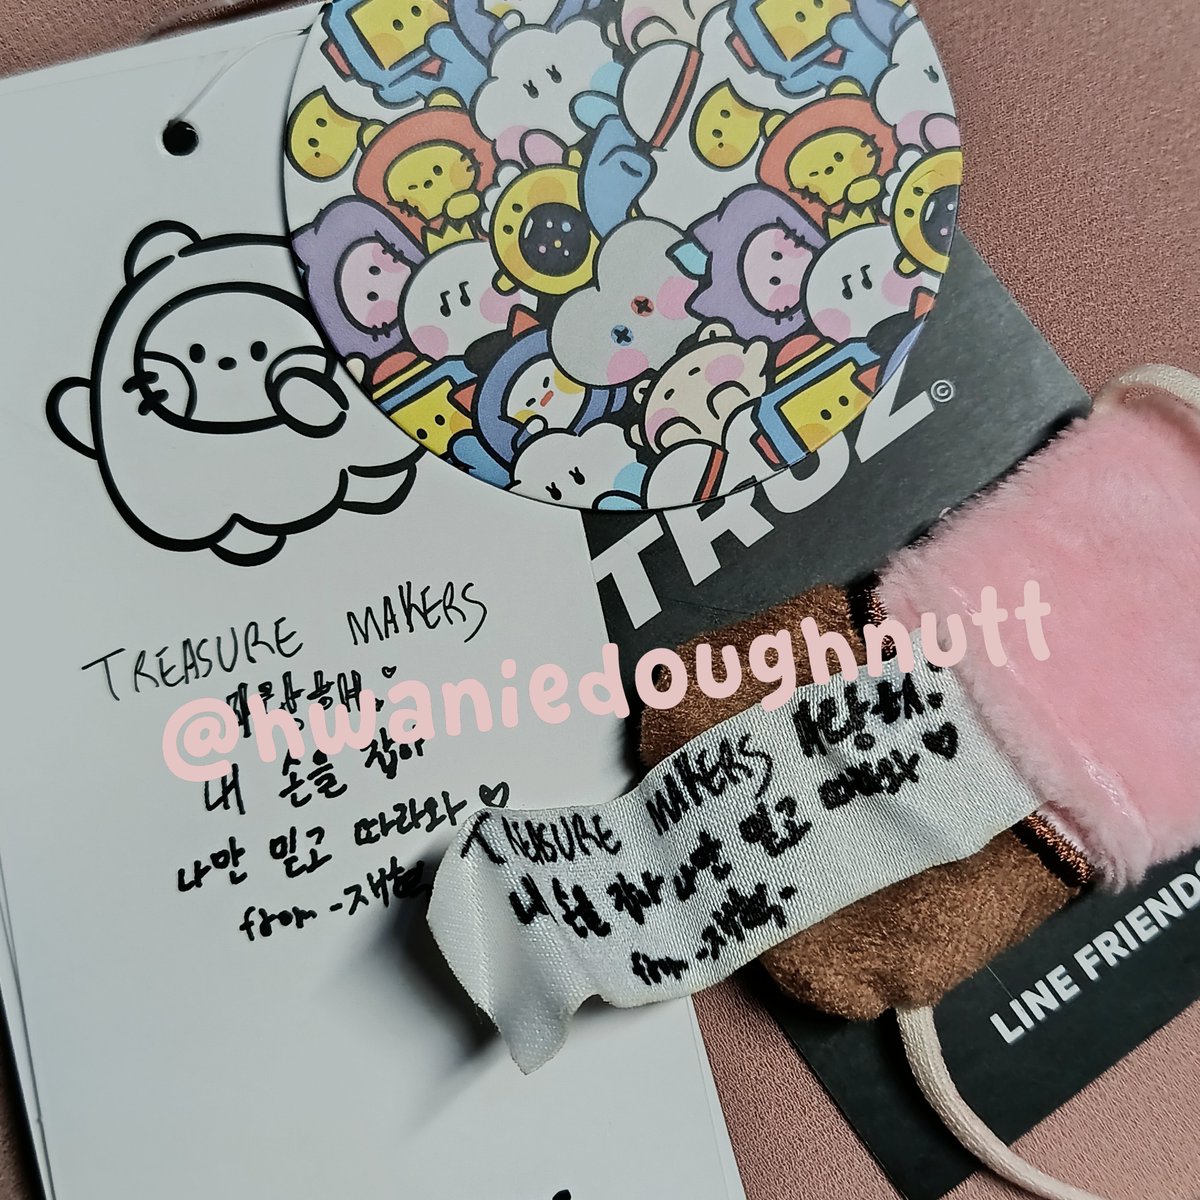 TRUZ©
TREASURE MAKERS
사랑해요♡
내 손을 잡아
나만 믿고 따라와♡
from -재혁
@hwaniedoughnutt
TREASURE MAKERS 사랑해요.
내 손을 잡아 나만 믿고 따라와♡
from -재혁-
LINE FRIENDS